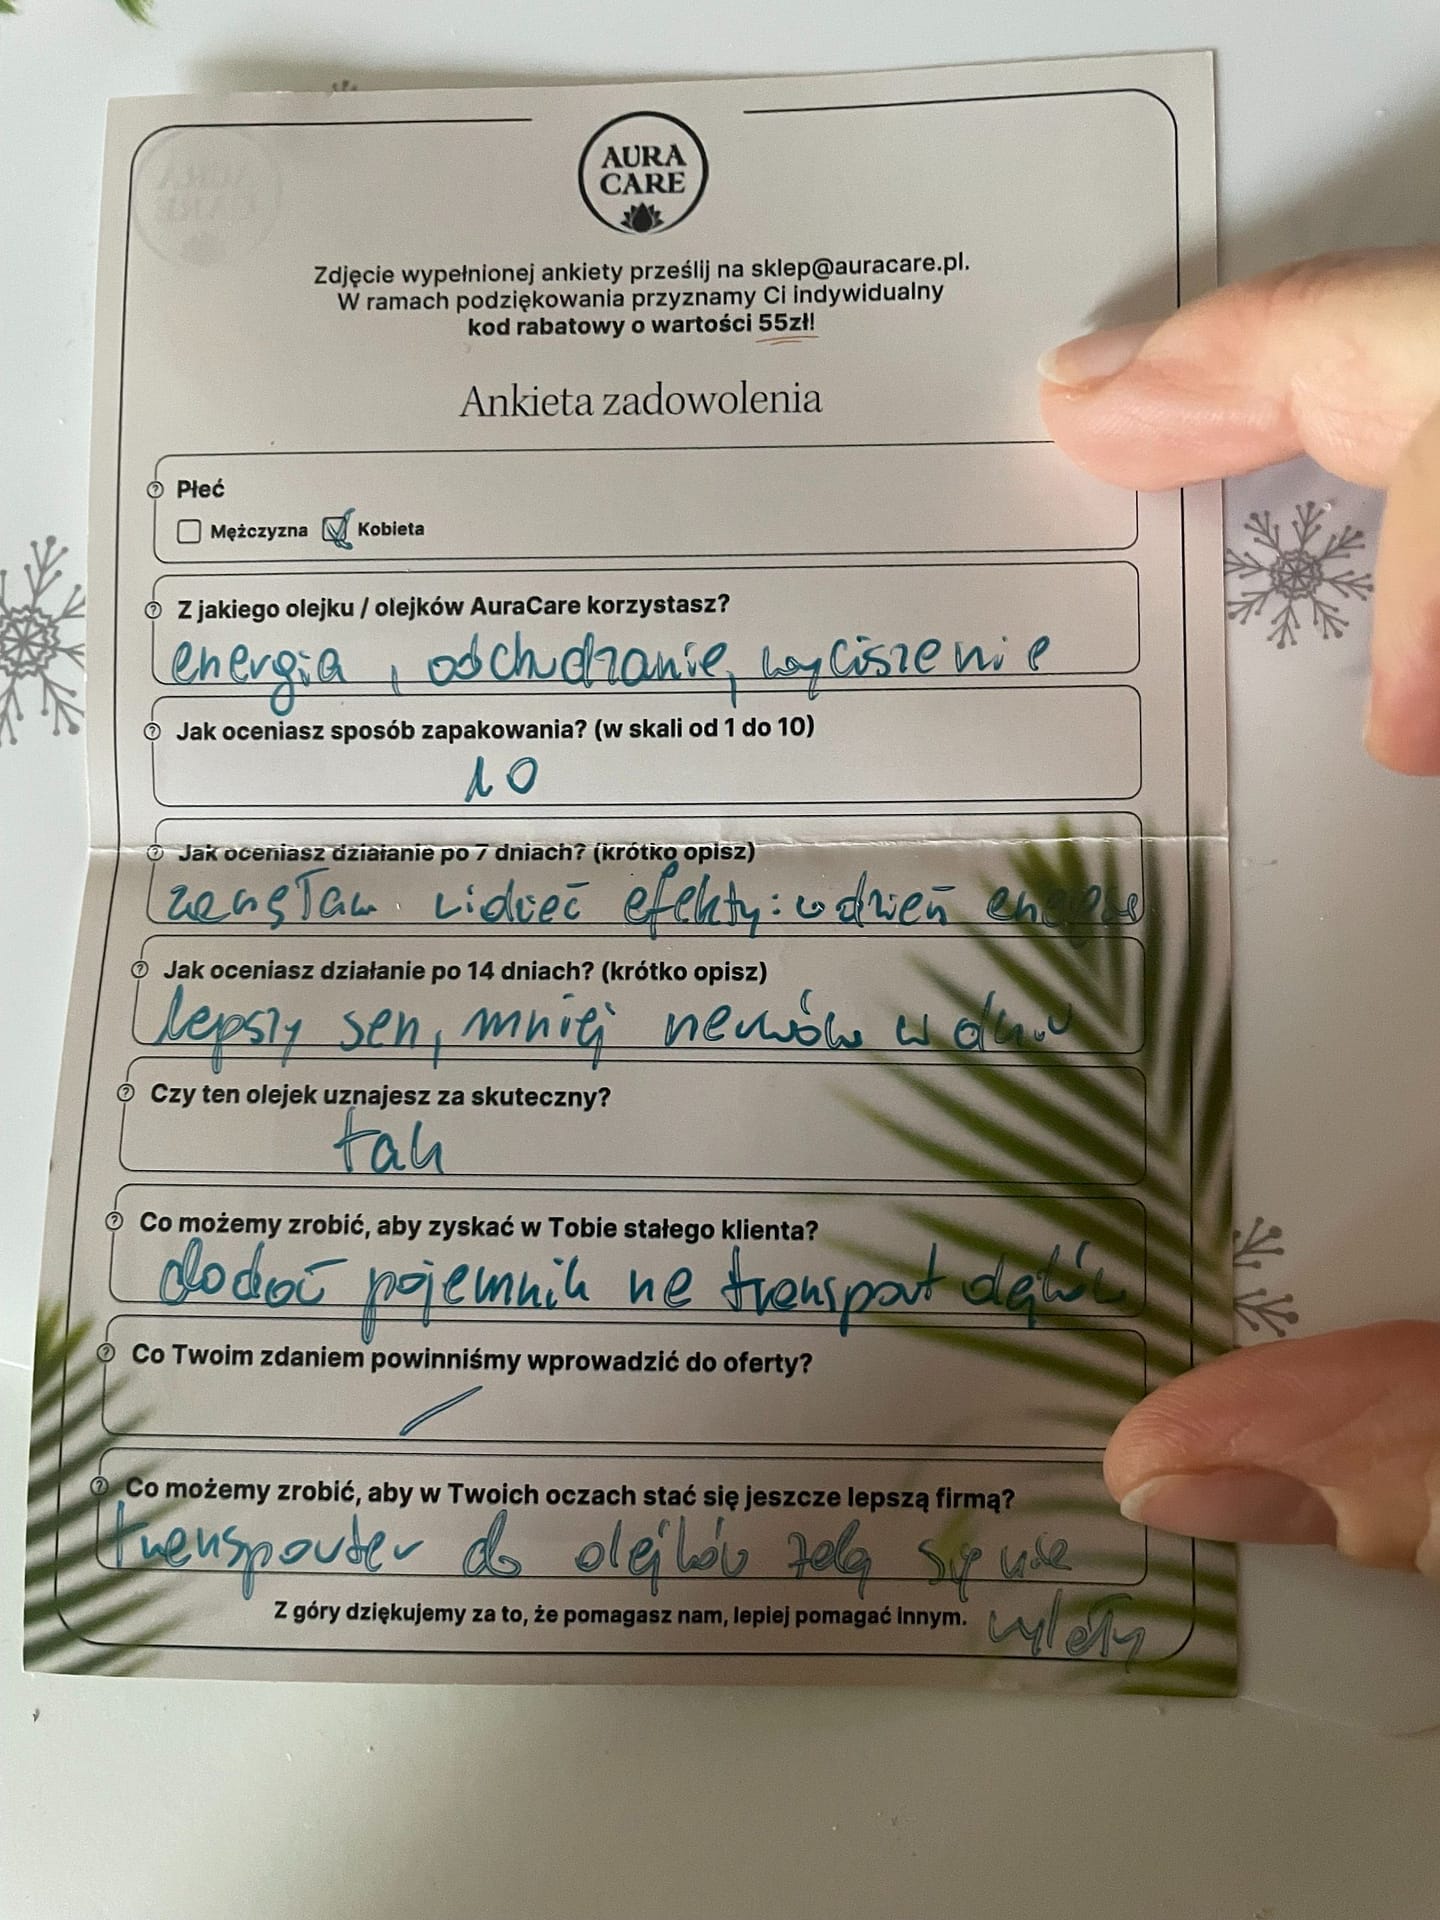 AURA
CARE
Zdjęcie wypełnionej ankiety prześlij na sklep@auracare.pl.
W ramach podziękowania przyznamy Ci indywidualny
kod rabatowy o wartości 55zł!
Ankieta zadowolenia
Płeć
Mężczyzna Kobieta
Z jakiego olejku / olejków AuraCare korzystasz?
energia, odchudzanie, wyciszenie
Jak oceniasz sposób zapakowania? (w skali od 1 do 10)
10
Jak oceniasz działanie po 7 dniach? (krótko opisz)
zaczęłam widzieć efekty: w dzień
Jak oceniasz działanie po 14 dniach? (krótko opisz)
lepszy sen, mniej nerwów w dniu
Czy ten olejek uznajesz za skuteczny?
tak
Co możemy zrobić, aby zyskać w Tobie stałego klienta?
dodać pojemnik na transport
Co Twoim zdaniem powinniśmy wprowadzić do oferty?
/
Co możemy zrobić, aby w Twoich oczach stać się jeszcze lepszą firmą?
transporter do olejków żeby się nie
Z góry dziękujemy za to, że pomagasz nam, lepiej pomagać innym.
wylały